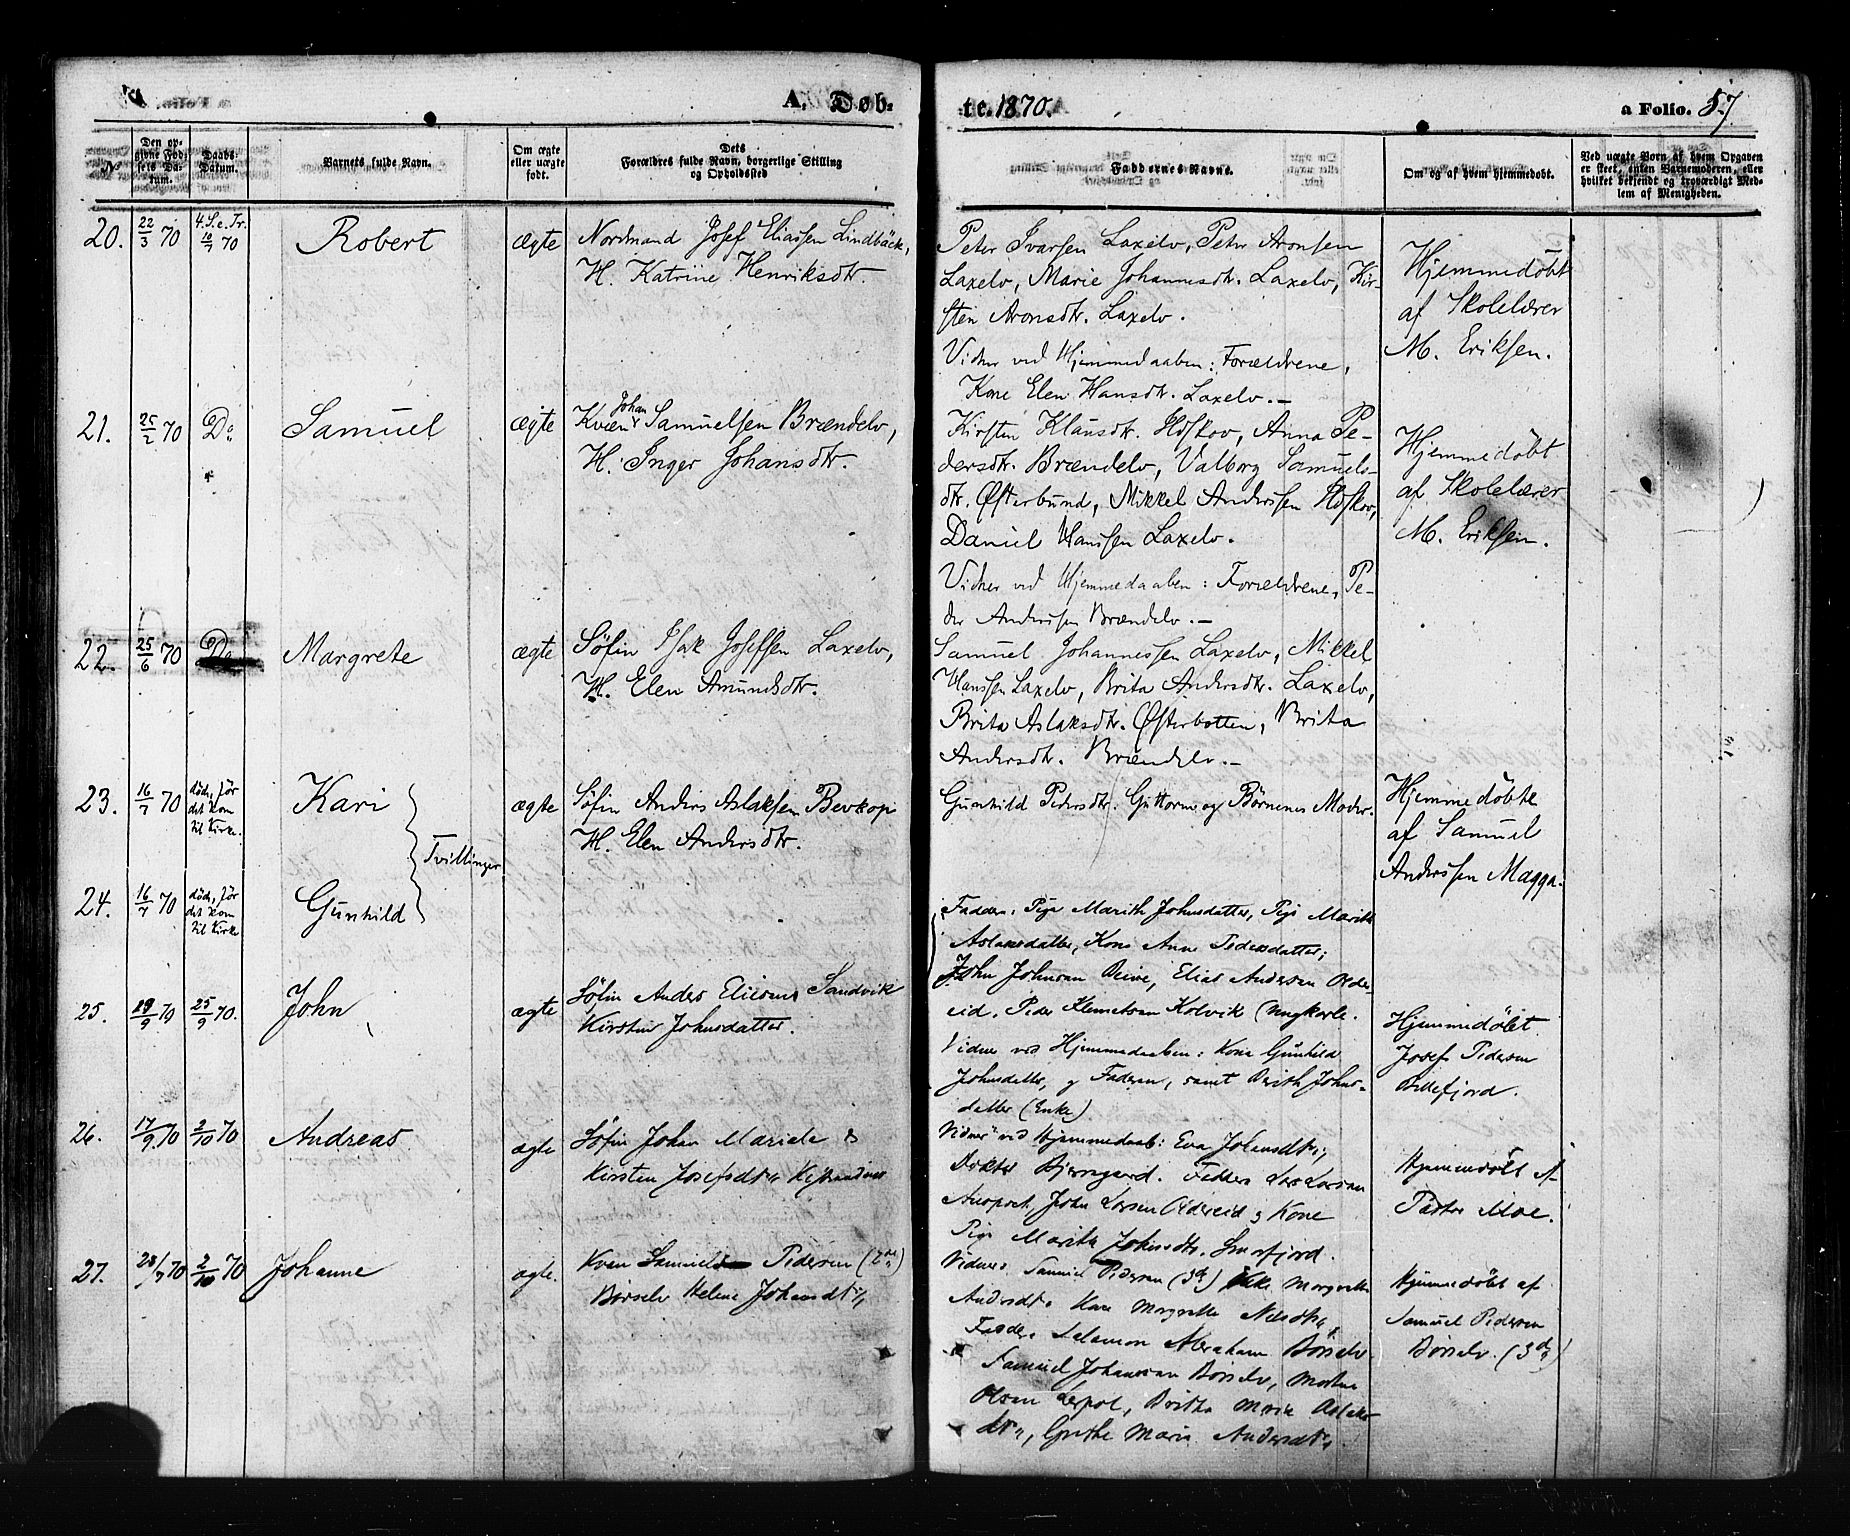 A. Døb-
te. 1870.
a Folio. 57
№
Den op-
givne Fød-
sels Da-
tum.
Daabs-
Datum.
Barnets fulde Navn.
Om ægte
eller uægte
født.
Dets
Forældres fulde Navn, borgerlige Stilling
og Opholdssted
Faddernes Navne.
Om og af hvem hjemmedøbt.
Ved uægte Børn af hvem Opgaven
er skeet, enten Barnemoderen, eller
hvilket bekjendt og troværdigt Med-
lem af Menigheden.
20. 22/3 70
4. S. e. Tr.
10/7 70
Robert
ægte
Nordmand Josef Eliassen Lindbäck,
H. Katrine Henriksdtr.
Peter Ivarsen Laxelv, Peter Aronsen
Laxelv, Marie Johannesdtr. Laxelv, Kir-
sten Aronsdtr. Laxelv.
Vidner ved Hjemmedaaben: Forældrene,
Kone Elen Hansdtr. Laxelv.
Hjemmedøbt
af Skolelærer
M. Eriksen.
21. 25/2 70 Do
Samuel
ægte
Johan
Kvæn Samuelsen Brændelv,
H. Inger Johansdtr.
Kirsten Klausdtr. Høskov, Anna Pe-
dersdtr. Brændelv, Valborg Samuels-
dtr. Østerbund, Mikkel Anderssen Høskov,
Daniel Hanssen Laxelv.
Vidner ved Hjemmedaaben: Forældrene, Pe-
der Anderssen Brændelv.
Hjemmedøbt
af Skolelærer
M. Eriksen.
22. 25/6 70 Do
Margrete
ægte
Søfin Isak Josefsen Laxelv,
H. Elen Amundsdtr.
Samuel Johannessen Laxelv, Mikkel
Hanssen Laxelv, Brita Andersdtr. Laxelv,
Brita Aslaksdtr. Østerbotten, Brita
Andersdtr. Brændelv.
23. 16/7 70
død, før
det kom
til Kirke.
Kari
Tvillinger
ægte
Søfin Anders Aslaksen Bevkop
H. Elen Andersdtr.
Gunhild Pedersdtr. Guttorm og Børnenes Moder.
Hjemmedøbte
af Samuel
Anderssen Magga.
24. 16/7 70
død, før
det kom
til Kirke
Gunhild
Faddere: Pige Marith Johnsdatter, Pige Marith
Aslaksdatter, Kone Anne Pedersdatter;
John Johnsen Beive, Elias Andersen Older-
eid. Peder Klemetsen Kolvik (Ungkarle.
Vidner ved Hjemmedaaben: Kone Gunhild
Johnsdatter, og Faderen, samt Berith Johns-
datter (Enke)
25. 19/9 70 25/9 70.
John
ægte
Søfin Anders Eliesens Sandvik
Kirstine Johnsdatter.
Hjemmedøbt
Josef Pedersen
Billefjord.
26. 17/9 70 2/10 70
Andreas
ægte
Søfin Johan Mariele &
Kirsten Josefsdtr Kistrandnes
Vidner ved Hjemmedaab: Eva Johansdtr,
Doktor Bjerregaard. Faddere Lars Larsen
John Larsen Oldereid & Kone
Pige Marith Johnsdtr. Smørfjord.
Hjemmedøbt af
Pastor Moe.
27. 28/7 70 2/10 70
Johanne
ægte.
Kvæn Samuel Pedersen (2den)
Børselv Helene Johansdtr
Vidner. Samuel Pedersen (3die) Margrethe
Andersdtr Kone Margrethe Nilsdtr,
Faddere Salamon Abraham Børselv
Samuel Johansen Børselv, Morten
Olsen Leypot, Britha Maria Aslaks-
dtr, Grethe Marie Andersdtr.
Hjemmedøbt af
Samuel Pedersen
Børselv. (3die)